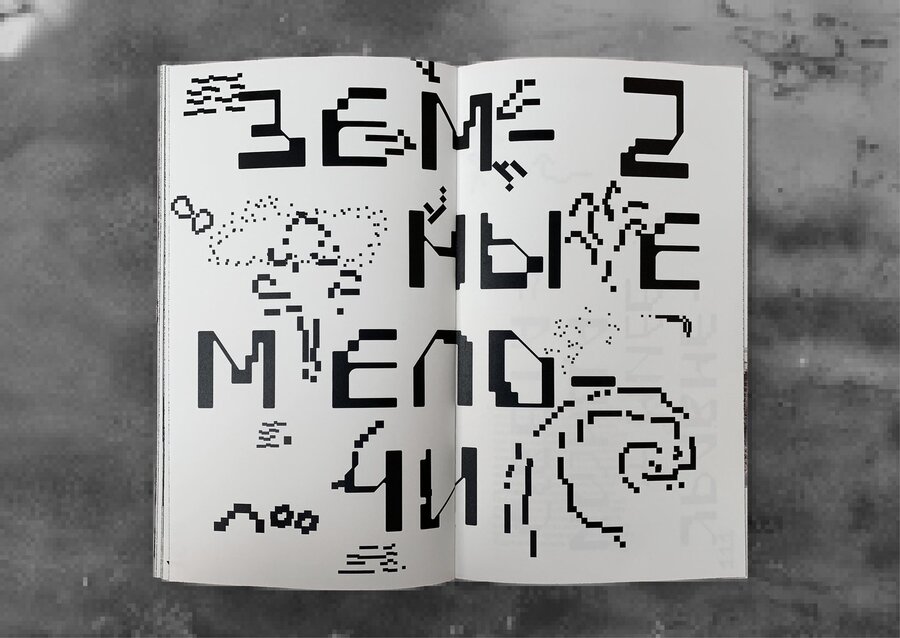 ЗЕМ- 2
НЫЕ
МЕЛО-
ЧИ